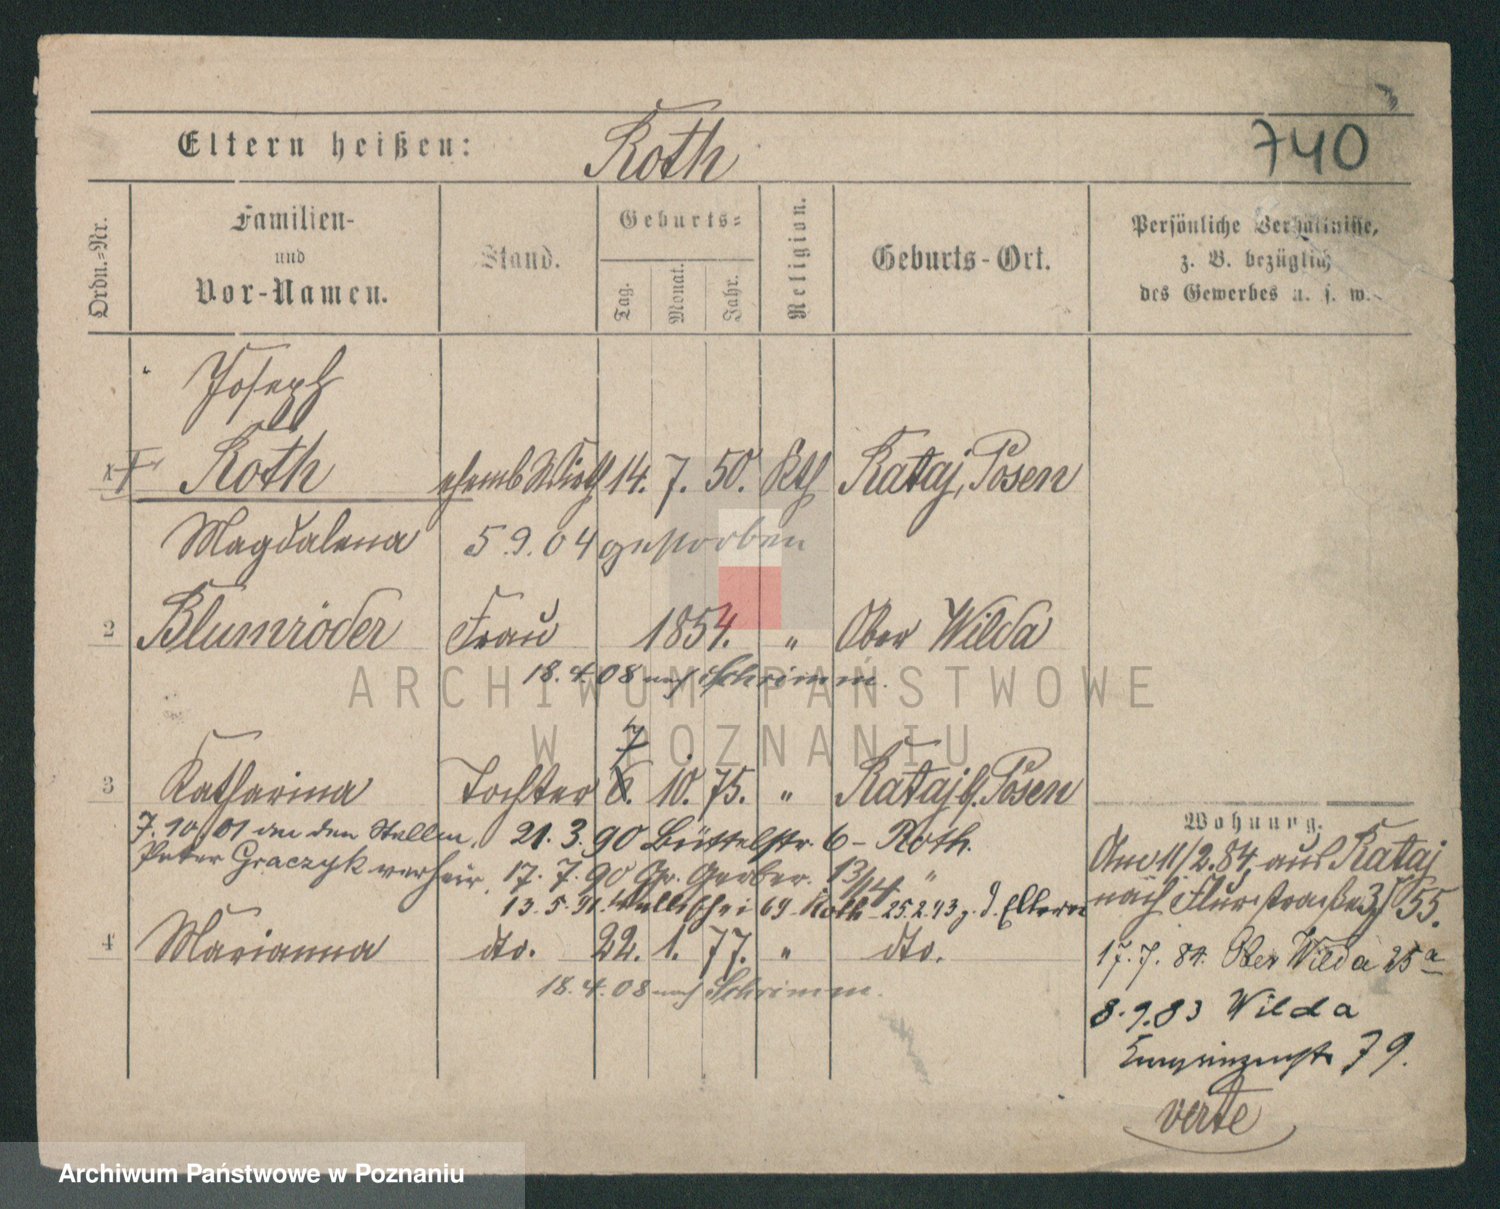 740
Eltern heißen: Roth
Ordn.=Nr.
Familien-
und
Vor-Namen.
Stand.
Geburts=
Tag.
Monat.
Jahr.
Religion.
Geburts-Ort.
Persönliche Verhältnisse,
z. B. bezüglich
des Gewerbes u. s. w.
Joseph
Roth 14. 7. 50. Kth Rataj, Posen
Magdalena 5.9.04 gestorben
2 Blumröder Frau 1854. " Ober Wilda
18.4.08 nach Schrimm.
7
3 Katharina Tochter 6. 10. 75. " Rataj b. Posen
7.10.01 an den Stellm. 21.3.90 Büttelstr. 6 - Roth.
Peter Graczyk verheir. 17.7.90 Gr. Gerber. 13/14 "
13.5.91. Wallischei 69 Roth 25.2.93 z. d. Eltern
4 Marianna dto. 22. 1. 77. " dto.
18.4.08 nach Schrimm.
Wohnung.
11/2.84, aus Rataj
nach Flurstraße
17.7.84. Ober Wilda 25a
8.9.83 Wilda
79.
verte
ARCHIWUM PAŃSTWOWE
W POZNANIU
Archiwum Państwowe w Poznaniu